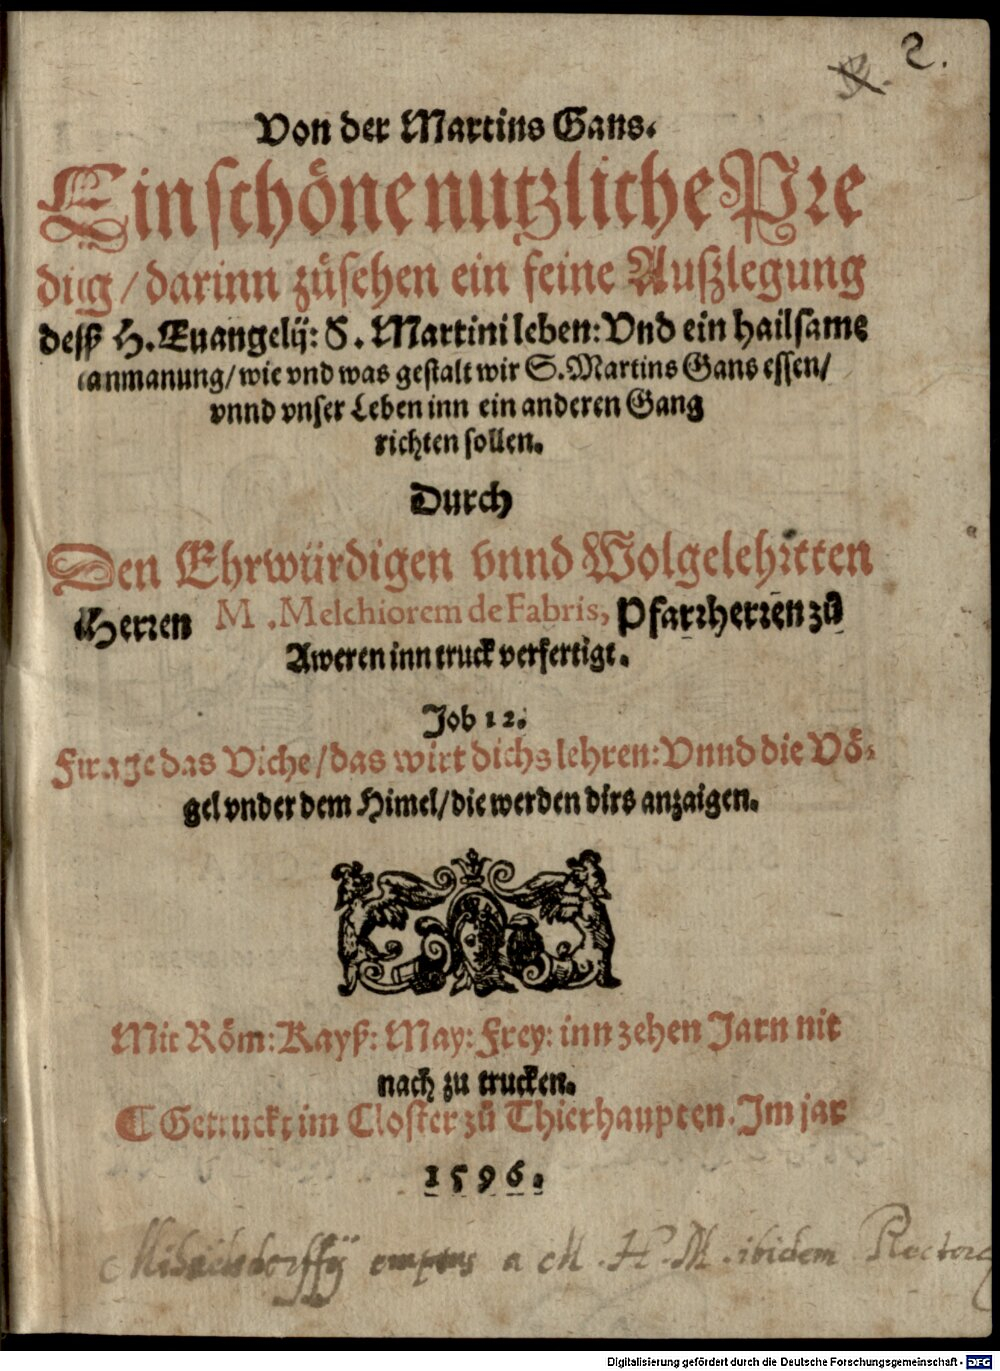 2.
Von der Martins Gans.
Ein schöne nutzliche Pre
dig / darinn zůsehen ein feine Außlegung
dess H. Euangelij: S. Martini leben: Vnd ein hailsame
anmanung / wie vnd was gestalt wir S. Martins Gans essen /
vnnd vnser Leben inn ein anderen Gang
richten sollen.
Durch
Den Ehrwürdigen vnnd Wolgelehrtten
Herren M. Melchiorem de Fabris, Pfarrherren zů
Aweren inn truck verfertigt.
Job 12.
Frage das Viche / das wirt dichs lehren: Vnnd die Vö-
gel vnder dem Himel / die werden dirs anzaigen.
Mit Röm: Kayß: May: Frey: inn zehen Jarn nit
nach zu trucken.
¶ Getruckt im Closter zů Thierhaupten. Im jar
1596.
emptus a M. H. M. ibidem Rectore
Digitalisierung gefördert durch die Deutsche Forschungsgemeinschaft - DFG